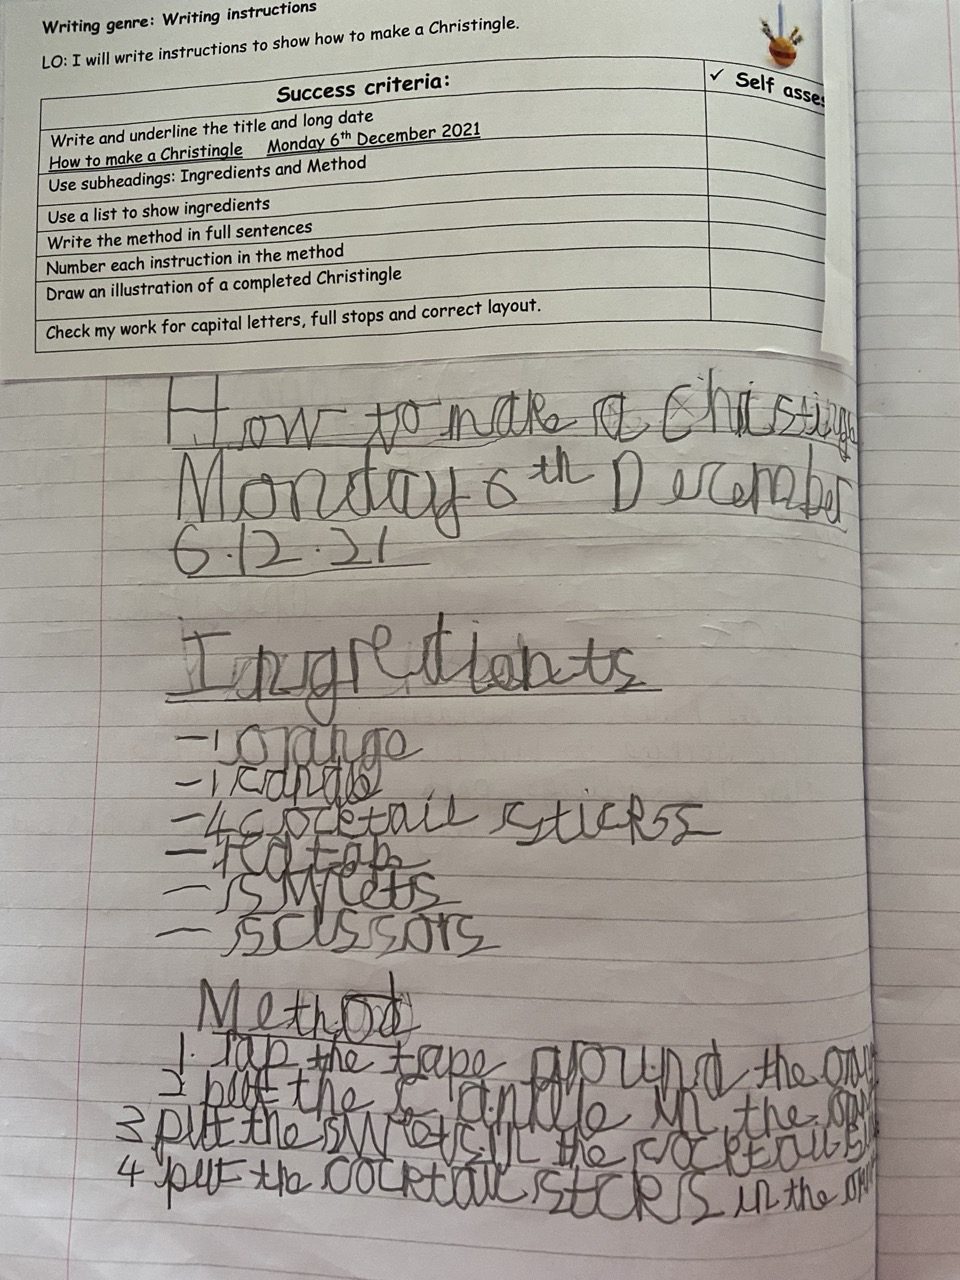 Writing genre: Writing instructions
LO: I will write instructions to show how to make a Christingle.
Success criteria:
✓ Self asses
Write and underline the title and long date
How to make a Christingle Monday 6th December 2021
Use subheadings: Ingredients and Method
Use a list to show ingredients
Write the method in full sentences
Number each instruction in the method
Draw an illustration of a completed Christingle
Check my work for capital letters, full stops and correct layout.
How to make a Christingle
Monday 6th December
6.12.21
Ingredients
- 1 orange
- 1 candle
- 4 cocktail sticks
- red tap
- sweets
- scissors
Method
1. Tap the tape around the
2 put the candle in the
3 put the sweets in the cocktail
4 put the cocktail sticks in the